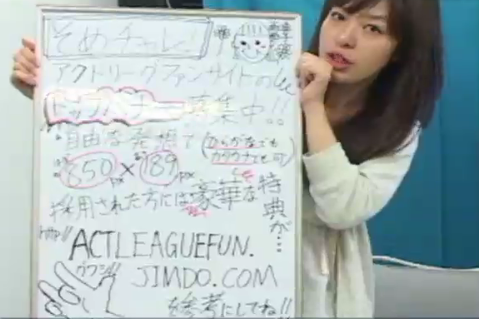 そめチャレ!
アクトリーグファンサイトの
トップバナー募集中!!
自由な発想で(からがなでも
850px×189px
採用された方には豪華な特典が…
http://
ACTLEAGUEFUN.
JIMDO.COM
を参考にしてね!!